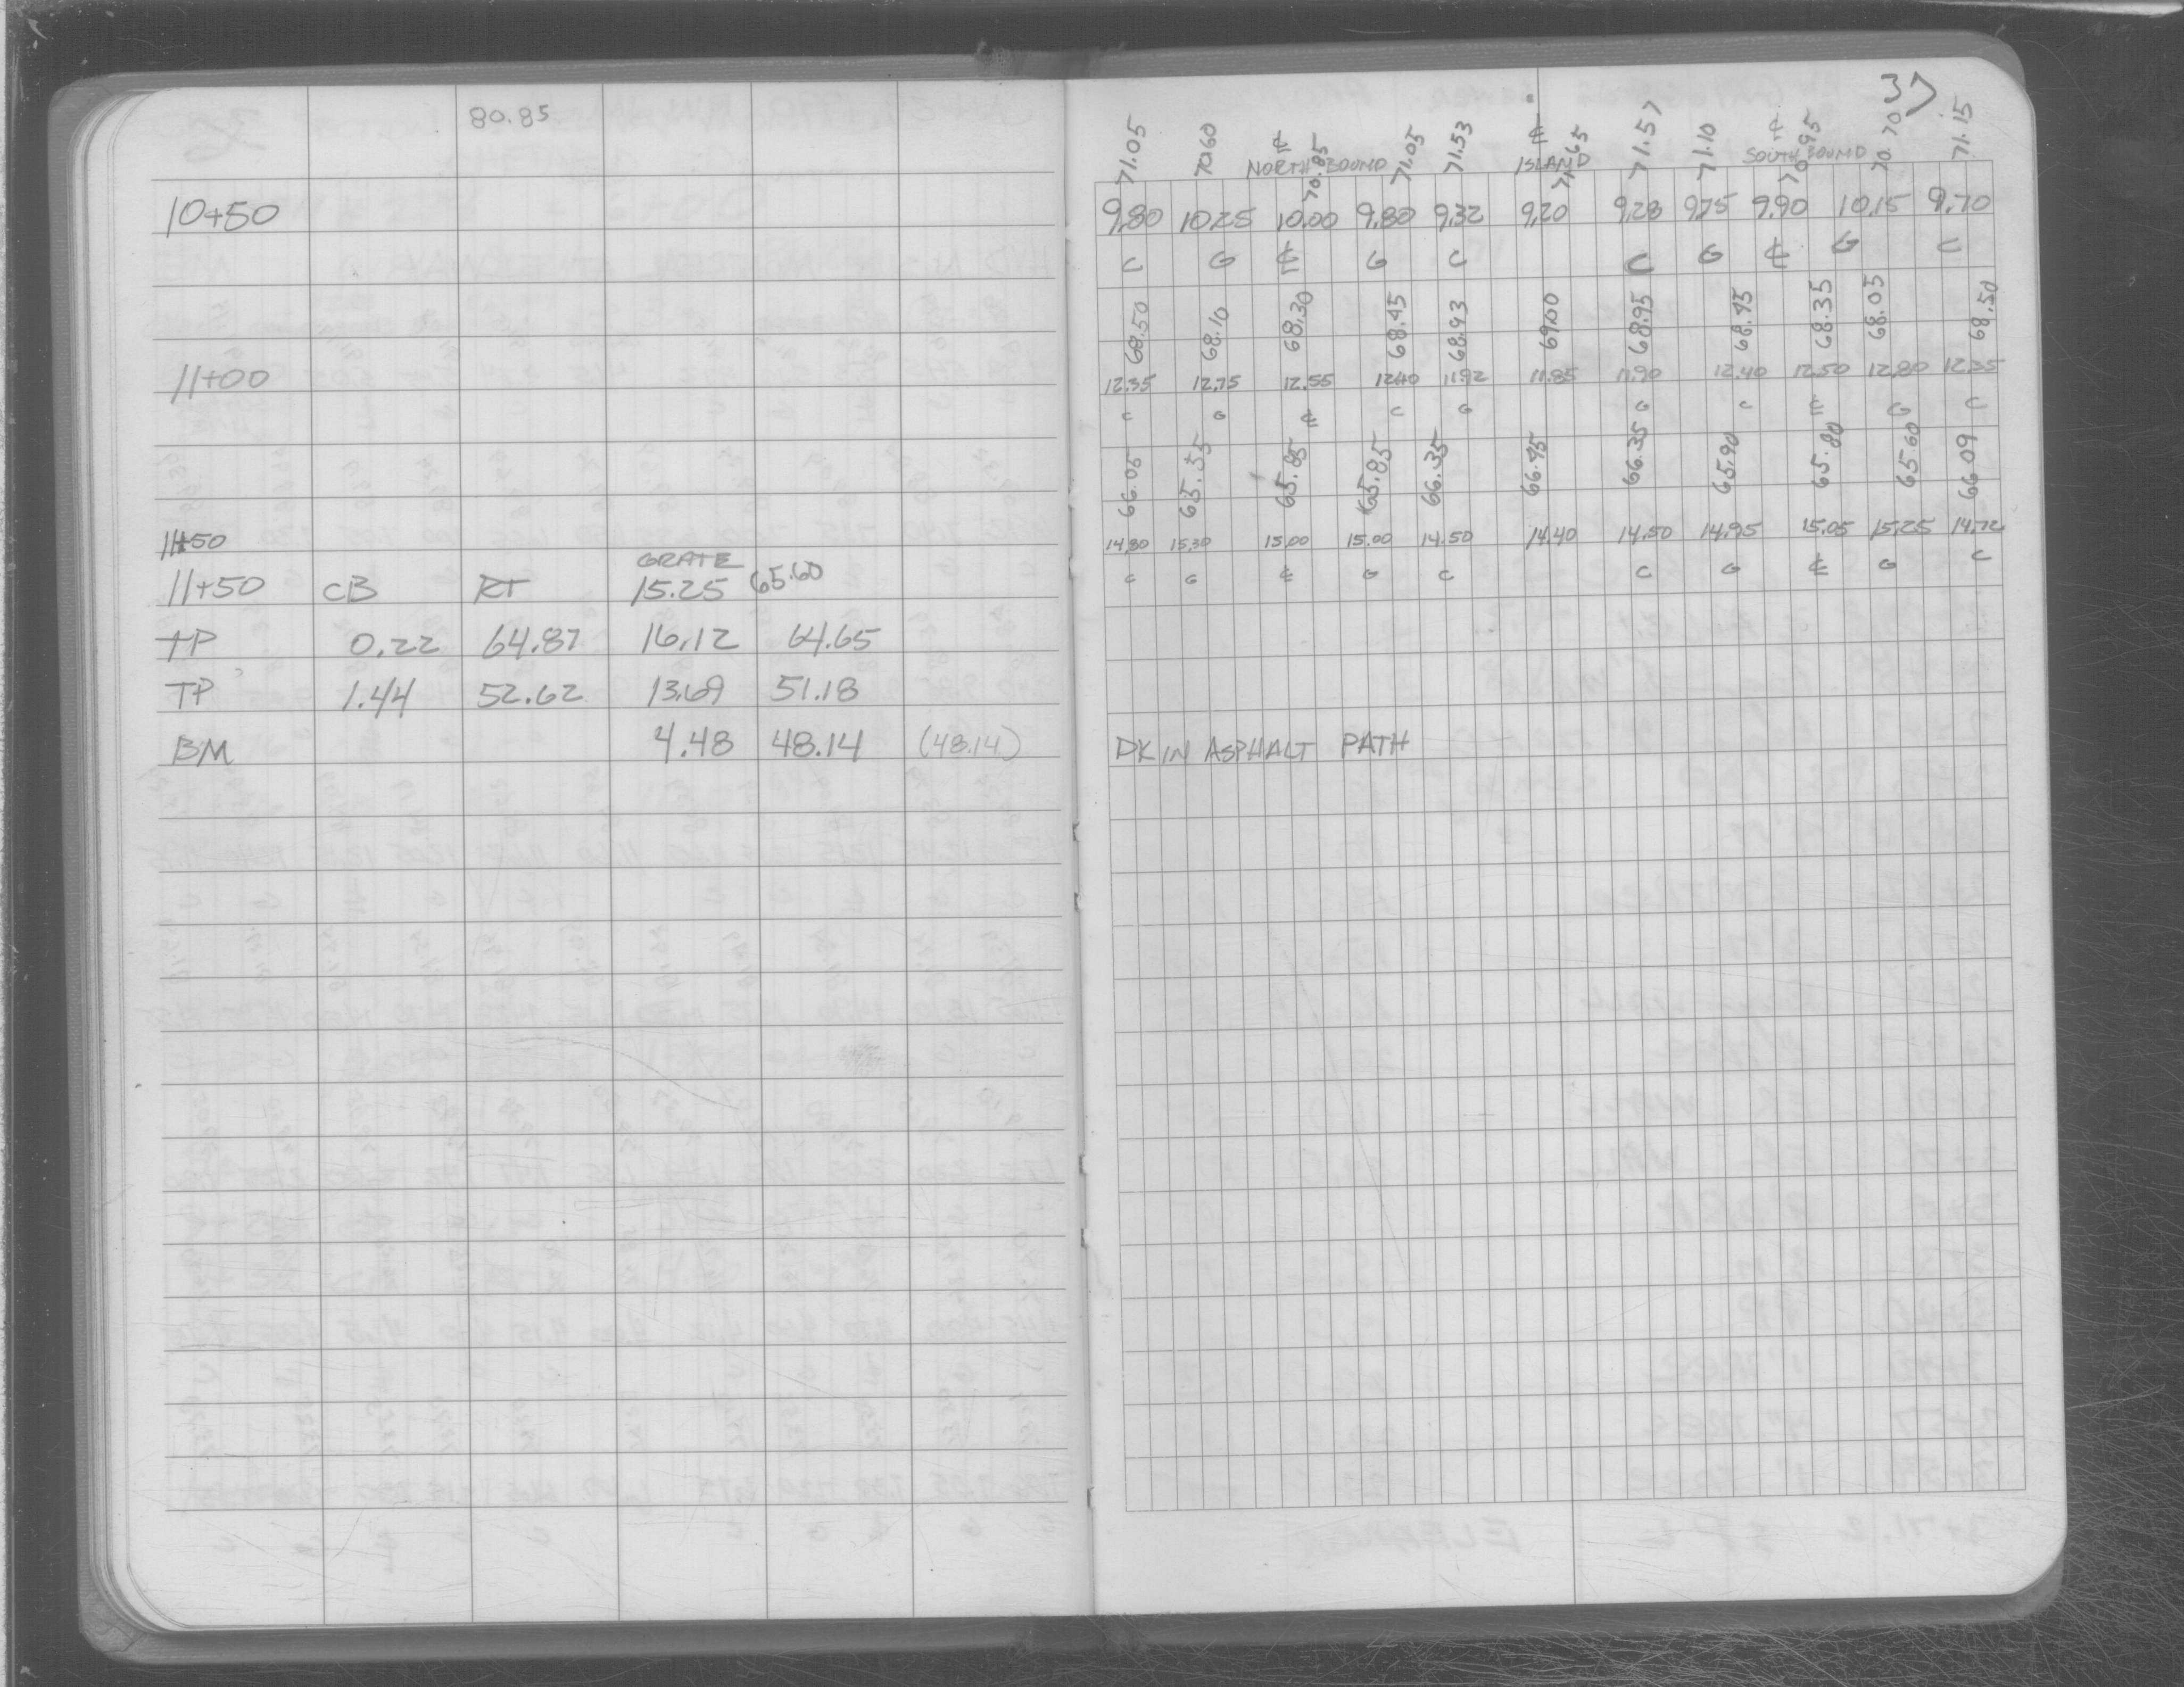 80.85
10+50
11+00
11+50
GRATE
11+50 CB RT 15.25 65.60
TP 0.22 64.87 16.12 64.65
TP 1.44 52.62 13.69 51.18
BM 4.48 48.14 (48.14)
37
71.05 70.60 70.85 71.05 71.53 71.65 71.57 71.10 70.95 70.70 71.15
℄ ℄ ℄
NORTH BOUND ISLAND SOUTH BOUND
9.80 10.25 10.00 9.80 9.32 9.20 9.28 9.75 9.90 10.15 9.70
C G ℄ G C C G ℄ G C
68.50 68.10 68.30 68.45 68.93 69.00 68.95 68.45 68.35 68.05 68.50
12.35 12.75 12.55 12.40 11.92 11.85 11.90 12.40 12.50 12.80 12.35
C G ℄ C G G C ℄ G C
66.05 65.55 65.85 65.85 66.35 66.45 66.35 65.90 65.80 65.60 66.09
14.80 15.30 15.00 15.00 14.50 14.40 14.50 14.95 15.05 15.25 14.72
C G ℄ G C C G ℄ G C
DK IN ASPHALT PATH